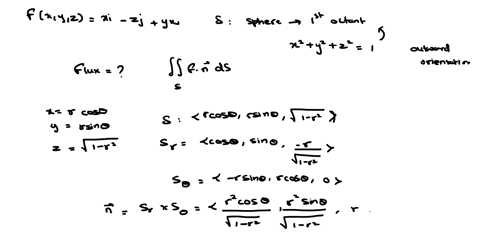 F(x,y,z) = xi - zj + yk   S : sphere → 1st octant
x² + y² + z² = 1   outward orientation
Flux = ?   ∬_S F·n⃗ dS
x = r cosθ
y = r sinθ   S : < r cosθ, r sinθ, √(1-r²) >
z = √(1-r²)   S_r = < cosθ, sinθ, -r/√(1-r²) >
S_θ = < -r sinθ, r cosθ, 0 >
n⃗ = S_r × S_θ = < r² cosθ/√(1-r²), r² sinθ/√(1-r²), r